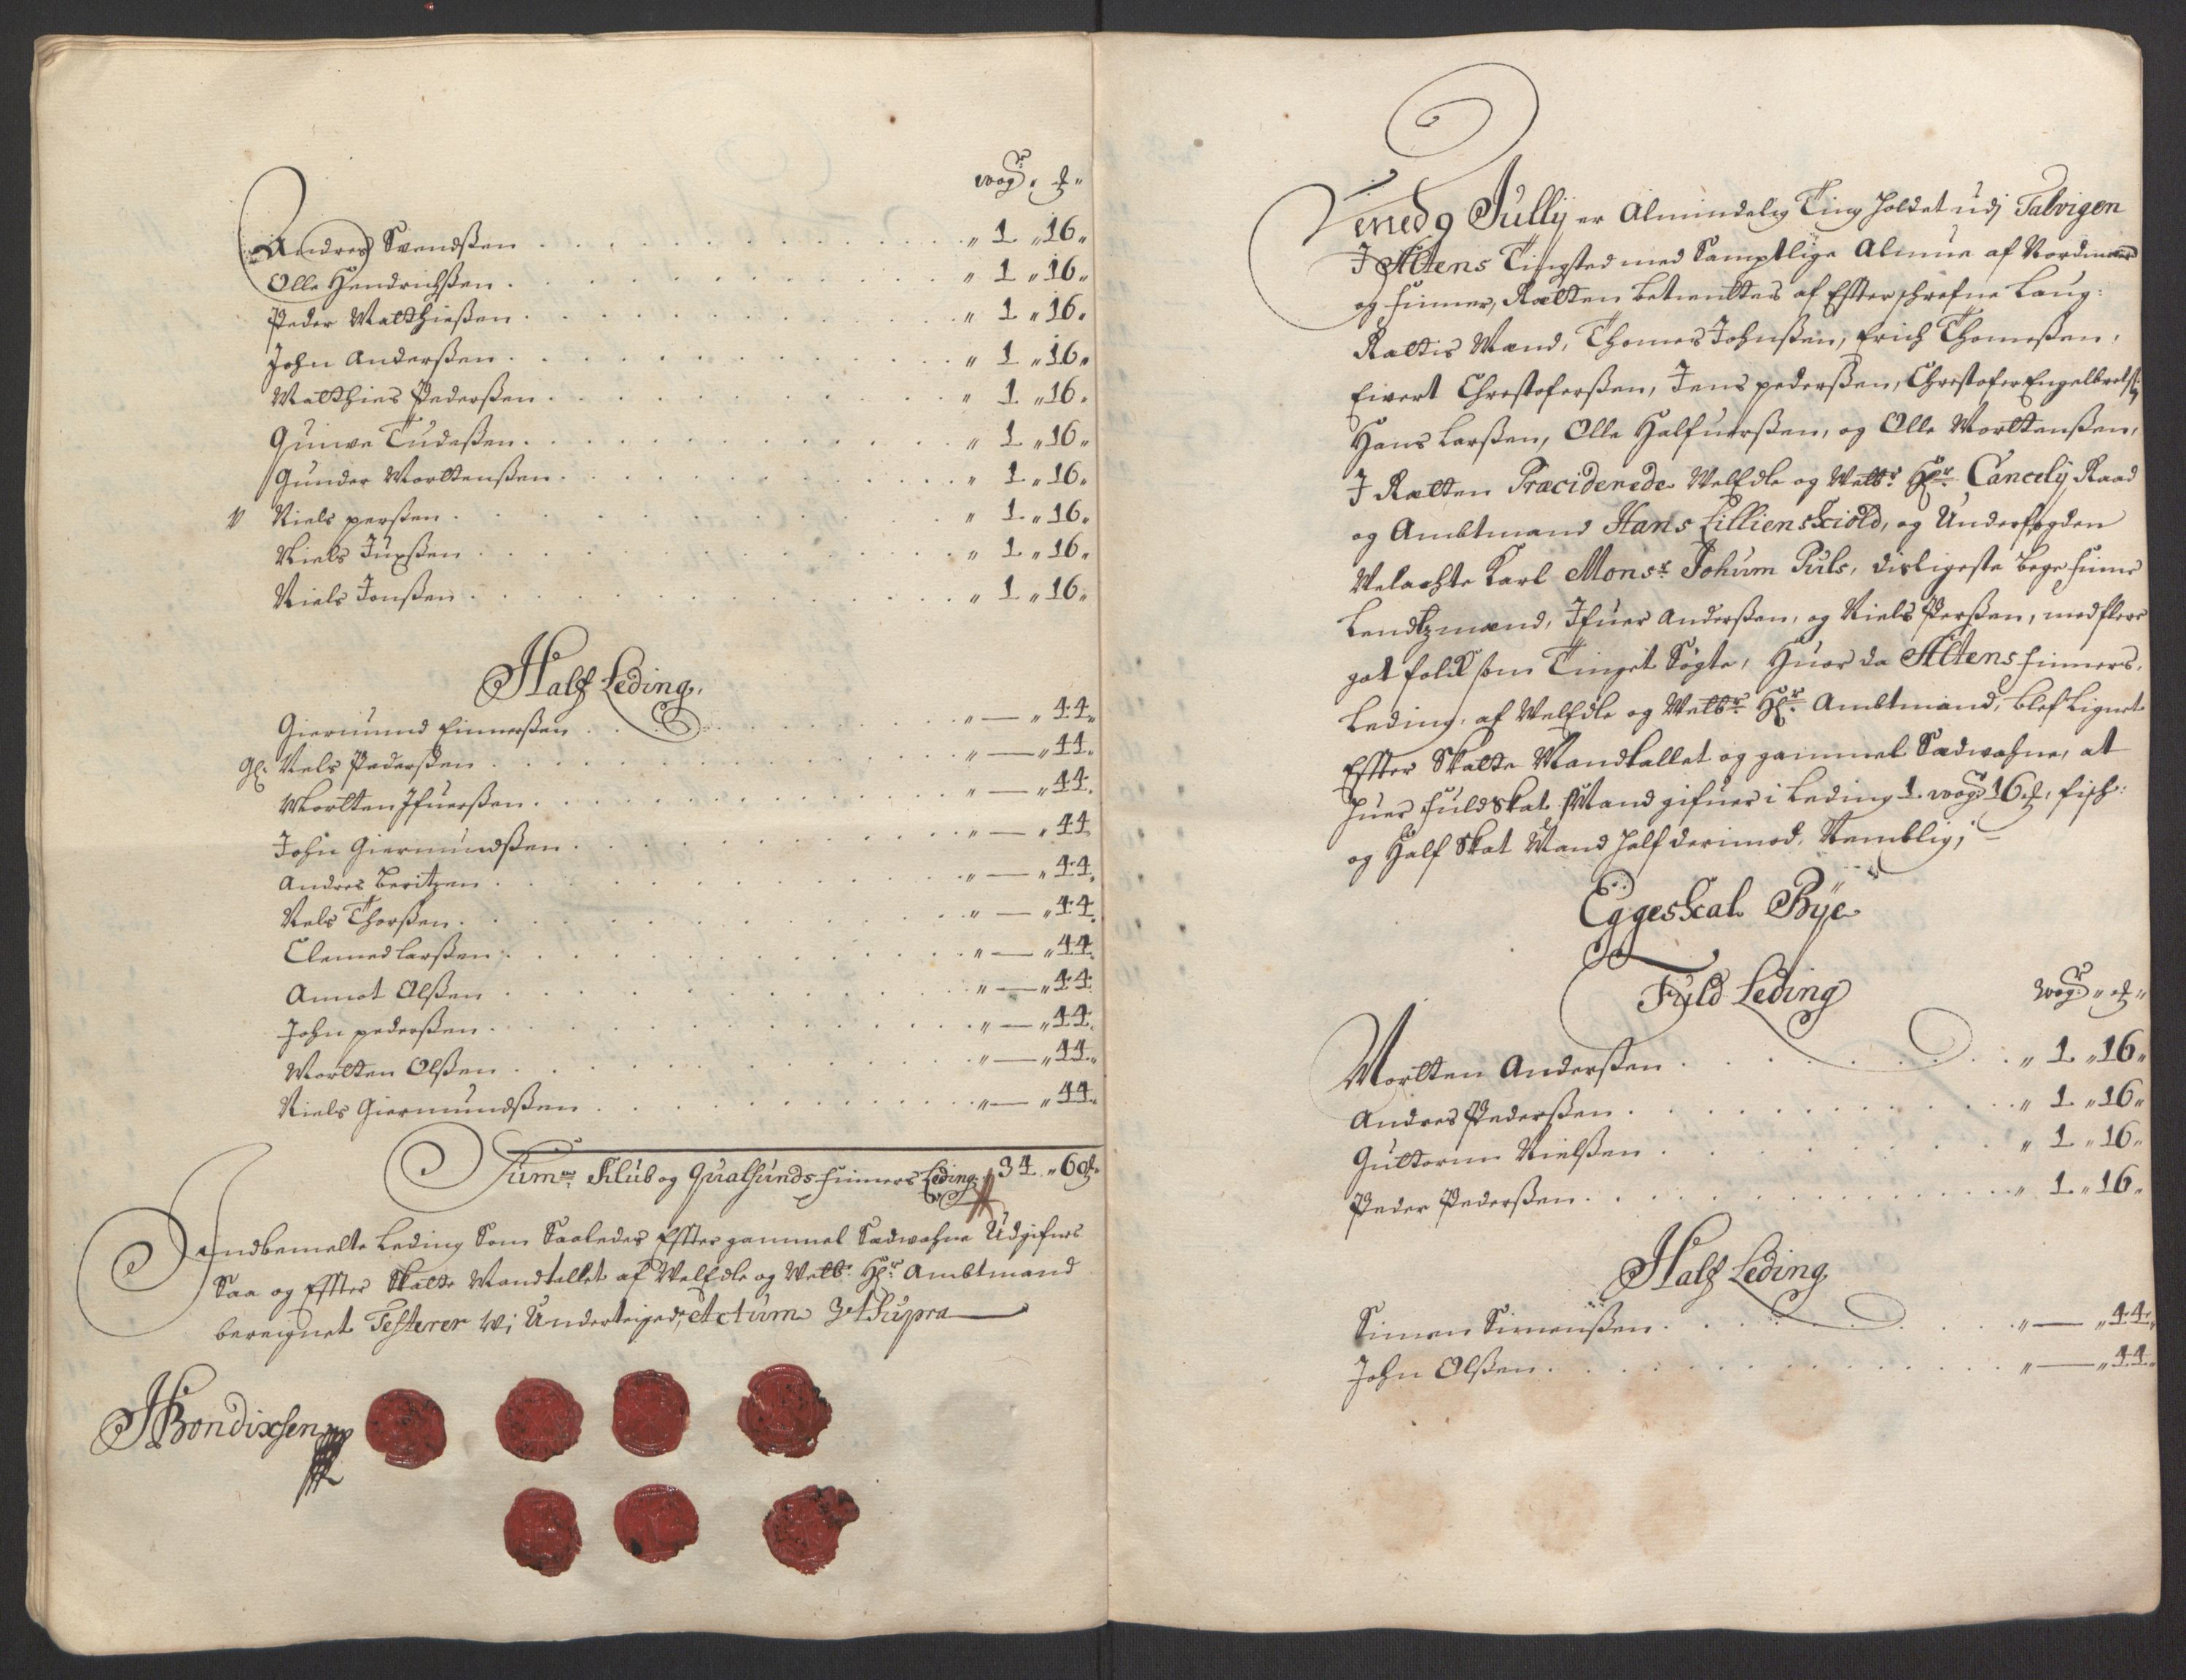 wog: ℔
Andres Svendßen . . . " 1 " 16 "
Olle Hendrichßen . . . " 1 " 16 "
Peder Matthießen . . . " 1 " 16 "
John Anderßen . . . " 1 " 16 "
Matthies Pederßen . . . " 1 " 16 "
Quiwe Tudeßen . . . " 1 " 16 "
Gunder Morttenßen . . . " 1 " 16 "
Niels perßen . . . " 1 " 16 "
Niels Juxßen . . . " 1 " 16 "
Niels Jonßen . . . " 1 " 16 "
Half Leding
Giermund Einnerßen . . . " — " 44 "
Gl. Nels Pederßen . . . " — " 44 "
Mortten Ifuerßen . . . " — " 44 "
John Giermundßen . . . " — " 44
Andres Beritzen . . . " — " 44 "
Nels Thorßen . . . " — " 44 "
Clemed Larßen . . . " — " 44 "
Annot Olßen . . . " — " 44
John pederßen . . . " — " 44 "
Mortten Olßen . . . " — " 44 "
Niels Giermundßen . . . " — " 44 "
Sum Klub og Qualsunds finners Leding 34 " 60 ℔
Indbemelte Leding Som Saaledes Effter gammel Sædwahne Udgifues
Saa og Effter Skatte Mandtallet af WelEdle og Welb: Hr Ambtmand
beregnet Testerer wi Underteigned, Actum Vt Supra
HBendixsen
Dend 9 Jullij er Almindelig Ting holdet udj Talvigen
J Altens Tingsted med Samptlige Almue af Nordmænd
og finner, Rætten betienttes af Effterschrefne Laug:
Rættis Mænd, Thomes Johnßen, Erich Thomeßen,
Eivert Christoferßen, Jens pederßen, Christofer Engelbretß:
Hans Larßen, Olle Halfuorßen, og Olle Morttenßen,
J Rætten Præciderede WelEdle og Welb: Hr Cancelij Raad
og Ambtmand Hans Lilliensciold, og Underfogden
Velachte Karl Monsr Johum Puls, disligeste bege finne
Lendtzmænd, Ifuer Anderßen, og Niels Perßen, med flere
got folck som Tinget Søgte, Huor da Altens finners
Leding, af WelEdle og Welbr Hr Ambtmand, blef Lignet
Effter Skatte Mandtallet og gammel Sædwahne, at
huer fuldskat Mand gifuer i Leding 1 wog 16 ℔ fisch:
og Half Skat Mand half derimod, Nemblig;
Eggeskal Bÿe
Fuld Leding
wog: " ℔ "
Mortten Anderßen . . . " 1 " 16 "
Andres Pederßen . . . " 1 " 16 "
Guttorm Nielßen . . . " 1 " 16 "
Peder Pederßen . . . " 1 " 16 "
Half Leding
Simen Simenßen . . . " — " 44 "
John Olßen . . . " — " 44 "